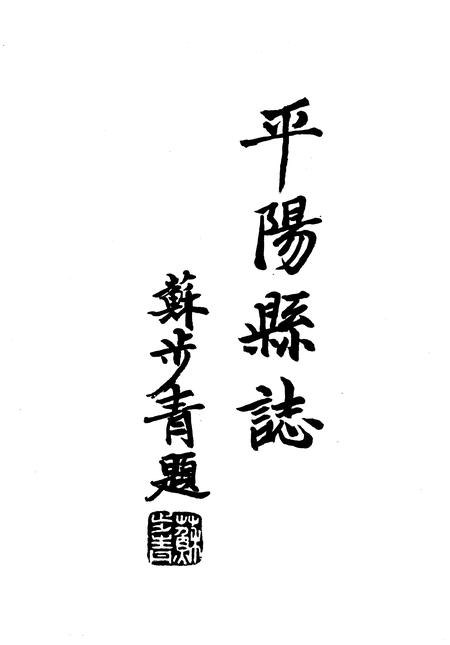 平陽縣誌
蘇步青題
蘇步青